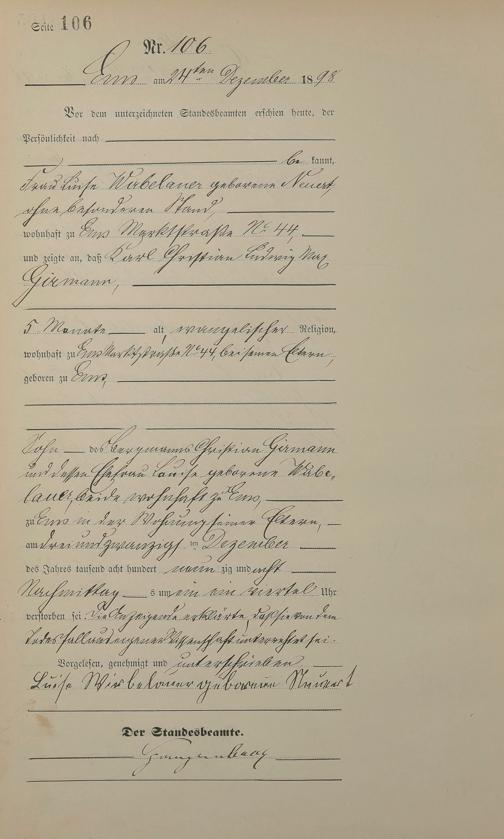 Seite 106
Nr. 106
Ems am 24ten Dezember 1898
Vor dem unterzeichneten Standesbeamten erschien heute, der
Persönlichkeit nach
be kannt,
Frau Luise Wabelauer geborene Neuert,
ohne besonderen Stand,
wohnhaft zu Ems Marktstraße No 44,
und zeigte an, daß Karl Christian Ludwig Max
Girmann,
5 Monate alt, evangelischer Religion,
wohnhaft zu Ems Marktstraße No 44, bei seinen Eltern,
geboren zu Ems,
Sohn des Bergmanns Christian Girmann
und dessen Ehefrau Louise geborene Wabe-
lauer, beide wohnhaft zu Ems,
zu Ems in der Wohnung seiner Eltern,
am dreiundzwanzigsten Dezember
des Jahres tausend acht hundert neun zig und acht
Nachmittags um ein ein viertel Uhr
verstorben sei. Die Anzeigende erklärte, daß sie von dem
Todesfall aus eigener Wissenschaft unterrichtet sei.
Vorgelesen, genehmigt und unterschrieben
Luise geborene Neuert
Der Standesbeamte.